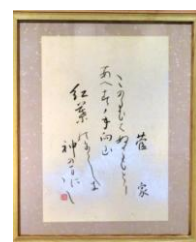 菅家
このたひはぬさもとり
あへす手向山
紅葉のにしき
神のまに〳〵